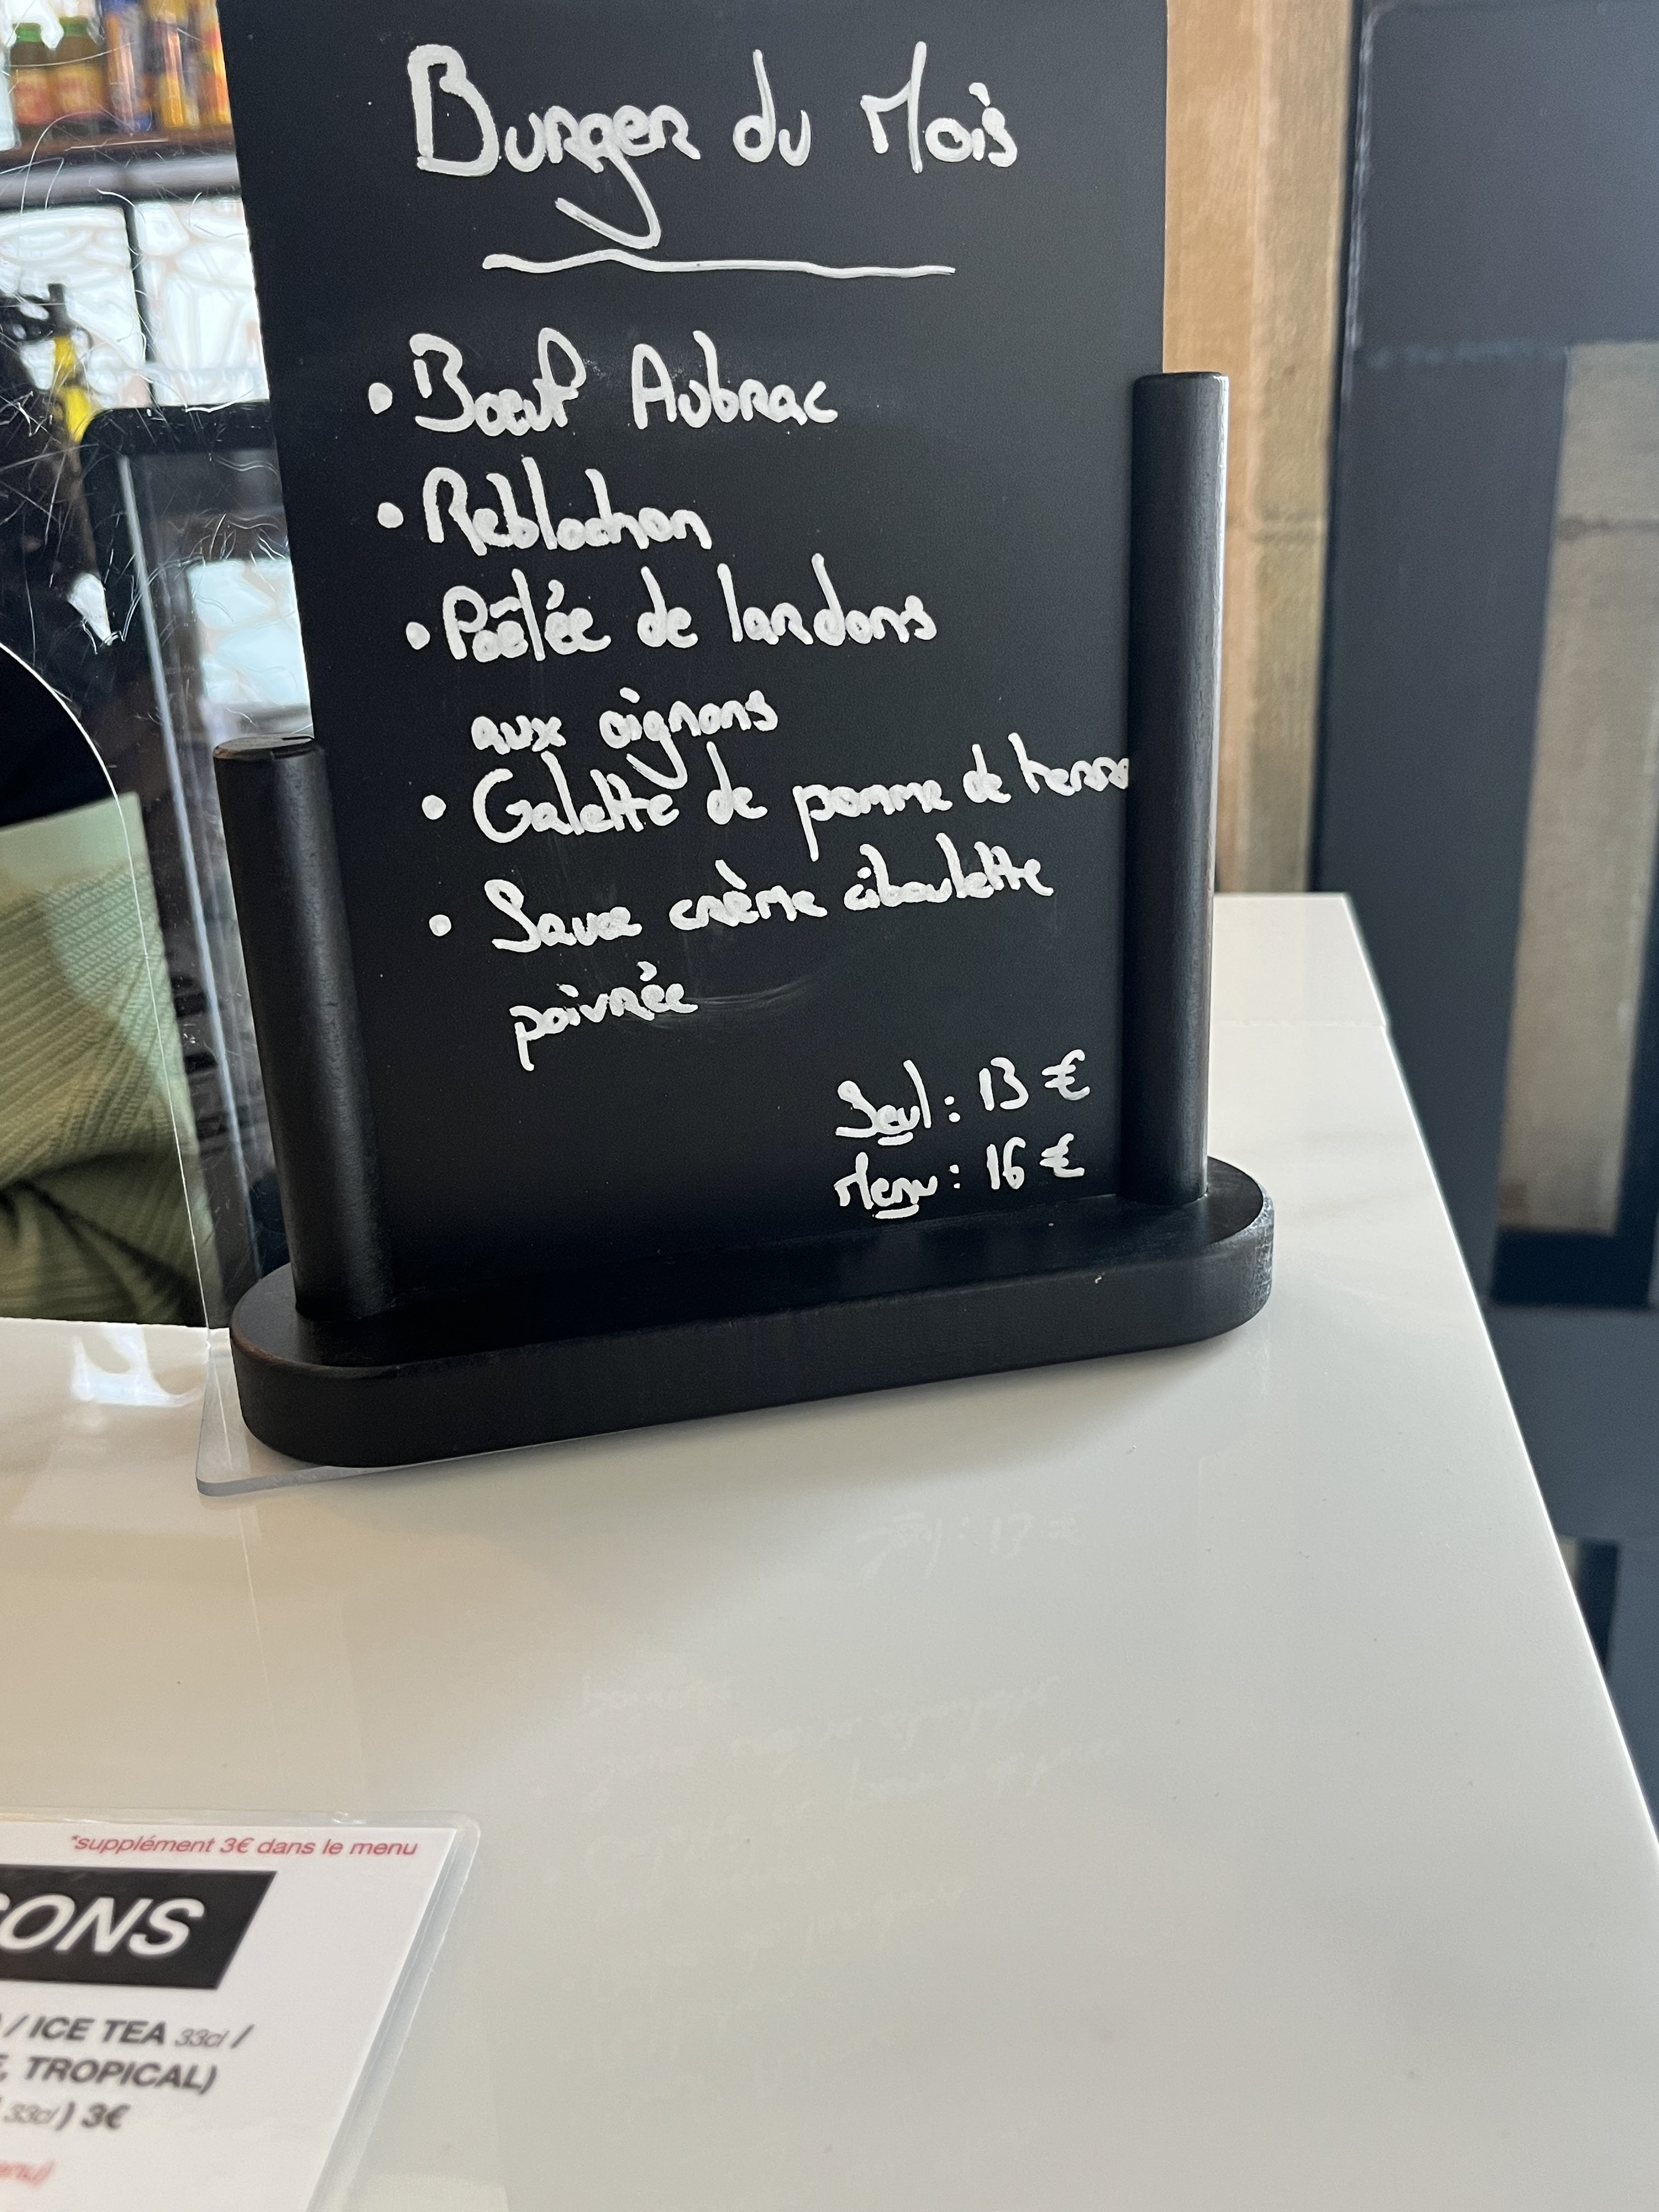 Burger du Mois
• Boeuf Aubrac
• Reblochon
• Poêlée de lardons
aux oignons
• Galette de pomme de terre
• Sauce crème ciboulette
poivrée
Seul : 13 €
Menu : 16 €
*supplément 3€ dans le menu
SONS
/ ICE TEA 33cl /
, TROPICAL)
33cl) 3€